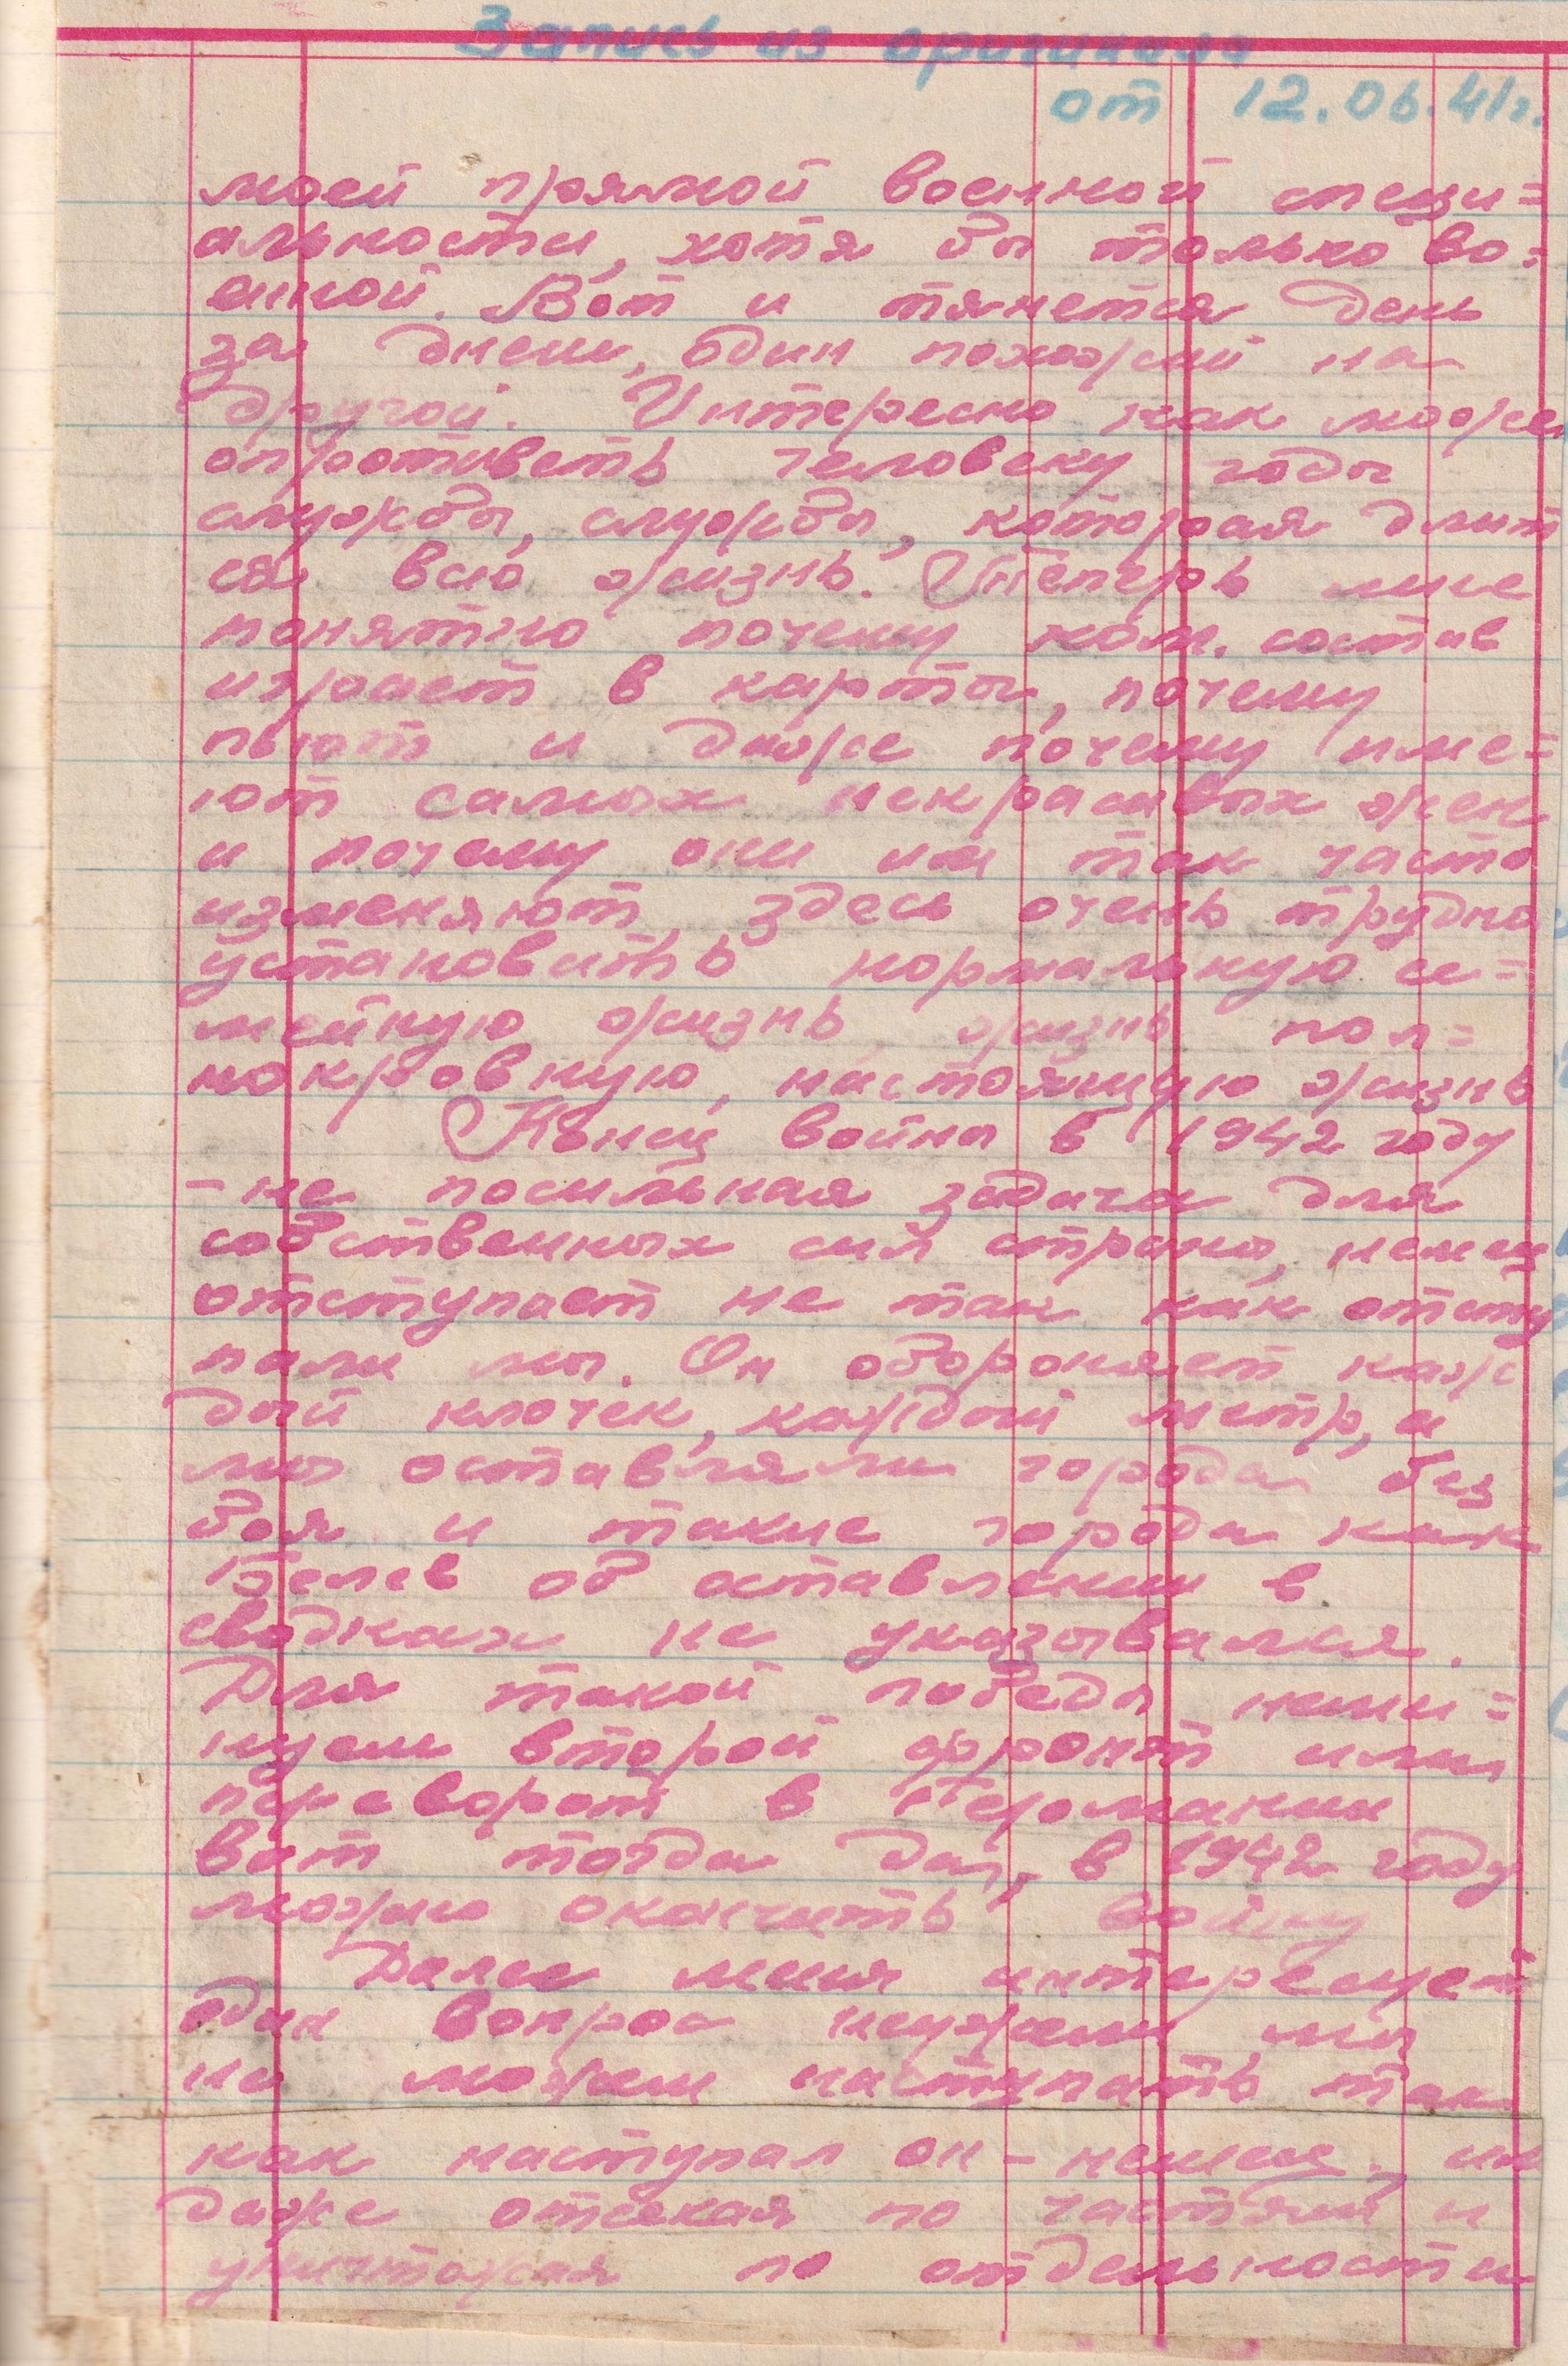 Запись из оригинала
от 12.06.41г.
моей прямой военной специ=
альности, хотя бы только во=
енной. Вот и тянется день
за днем, один похожий на
другой. Интересно как може
опротиветь человеку годы
службы, службы, которая длит
ся всю жизнь. Теперь мне
понятно почему ком. состав
играет в карты, почему
пьют и даже почему име=
ют самых некрасивых жен
и почему они им так часто
изменяют, здесь очень трудно
установить нормальную се=
мейную жизнь, жизнь пол=
нокровную, настоящую жизнь
Конец войны в 1942 году
- не посильная задача для
собственных сил страны, немец
отступает не так как отсту
пали мы. Он обороняет каж
дый клочек, каждый метр, а
мы оставляли города без
боя и такие города как
Белев об оставлении в
сводках не указывался.
Для такой победы неми=
нуем второй фронт или
переворот в Германии
вот тогда да, в 1942 году
можно окончить войну
Далее меня интересует
один вопрос неужели мы
не можем наступать так
как наступал он - немец, им
даже отсекая по частям и
уничтожая по отдельности